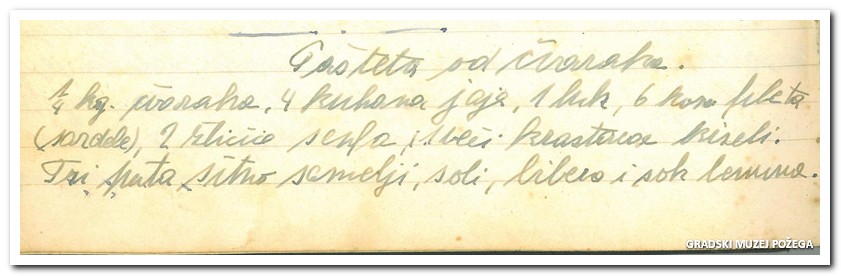 Pašteta od čvaraka.
1/4 kg. čvaraka, 4 kuhana jaja, 1 luk, 6 kom fileta
(sardele), 2 žličice senfa, i veći krastavac kiseli.
Tri puta sitno samelji, soli, bibera i sok lemuna.
GRADSKI MUZEJ POŽEGA